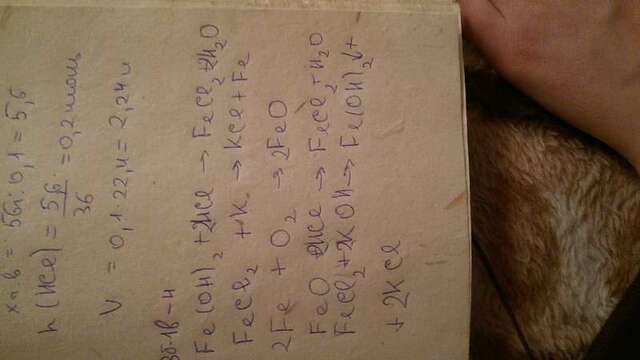 х.ч.в = 56г : 0,1 = 5,6
n (HCl) = 5,6/36 = 0,2 моль
V = 0,1 · 22,4 = 2,24 л
3б-1в-4
Fe(OH)₂ + 2HCl → FeCl₂ + 2H₂O
FeCl₂ + K → KCl + Fe
2Fe + O₂ → 2FeO
FeO 2HCl → FeCl₂ + H₂O
FeCl₂ + 2KOH → Fe(OH)₂↓ +
+ 2KCl